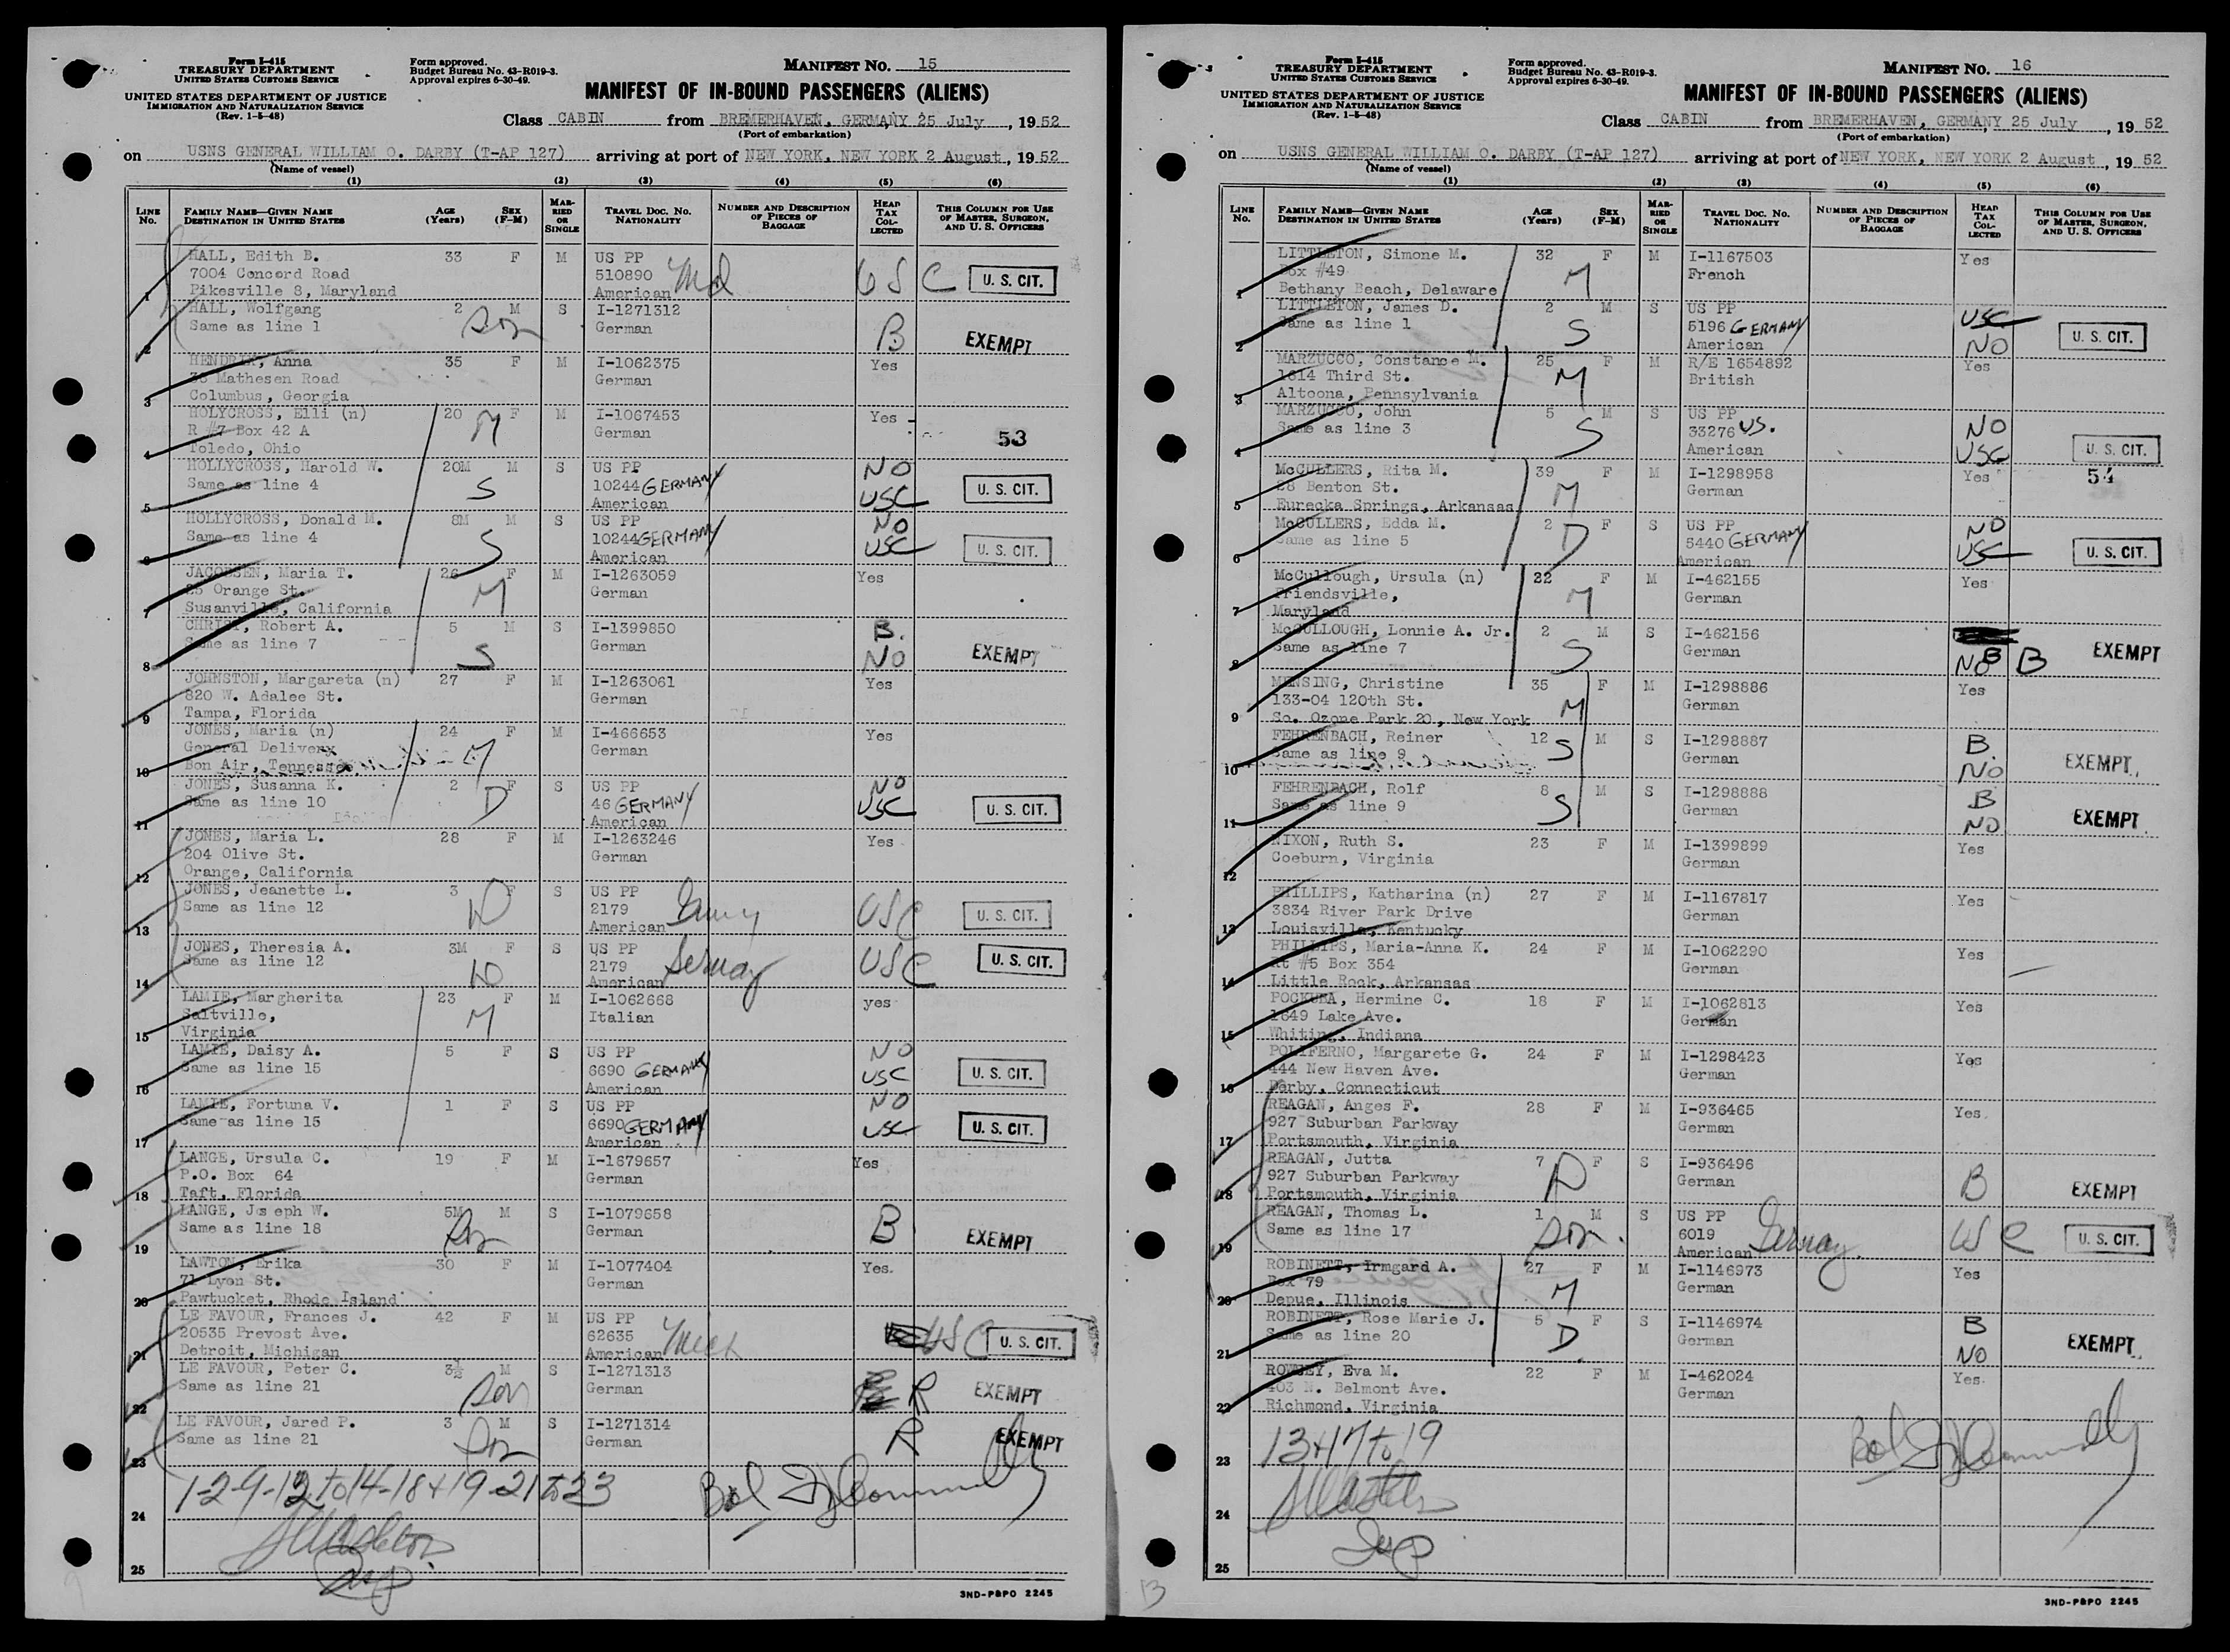 Form I-415
TREASURY DEPARTMENT
UNITED STATES CUSTOMS SERVICE
UNITED STATES DEPARTMENT OF JUSTICE
IMMIGRATION AND NATURALIZATION SERVICE
(Rev. 1-5-48)
Form approved.
Budget Bureau No. 43-R019-3.
Approval expires 6-30-49.
MANIFEST NO. 15
MANIFEST OF IN-BOUND PASSENGERS (ALIENS)
Class CABIN from BREMERHAVEN, GERMANY 25 July, 1952
(Port of embarkation)
on USNS GENERAL WILLIAM O. DARBY (T-AP 127) arriving at port of NEW YORK, NEW YORK 2 August, 1952
(Name of vessel)
(1) (2) (3) (4) (5) (6)
LINE NO. FAMILY NAME—GIVEN NAME DESTINATION IN UNITED STATES AGE (Years) SEX (F-M) MARRIED OR SINGLE TRAVEL DOC. NO. NATIONALITY NUMBER AND DESCRIPTION OF PIECES OF BAGGAGE HEAD TAX COLLECTED THIS COLUMN FOR USE OF MASTER, SURGEON, AND U. S. OFFICERS
HALL, Edith B. 33 F M US PP
7004 Concord Road 510890 Md USC U. S. CIT.
1 Pikesville 8, Maryland American
HALL, Wolfgang 2 M S I-1271312
Same as line 1 Son German B EXEMPT
2
HENDRIX, Anna 35 F M I-1062375 Yes
38 Mathesen Road German
3 Columbus, Georgia
HOLYCROSS, Elli (n) 20 M F M I-1067453 Yes
R #7 Box 42 A German 53
4 Toledo, Ohio
HOLLYCROSS, Harold W. 20M M S US PP NO
Same as line 4 S 10244 GERMANY USC U. S. CIT.
5 American
HOLLYCROSS, Donald M. 8M M S US PP NO
Same as line 4 S 10244 GERMANY USC U. S. CIT.
6 American
JACOBSEN, Maria T. 26 F M I-1263059 Yes
25 Orange St. M German
7 Susanville, California
CHRIST, Robert A. 5 M S I-1399850 B.
Same as line 7 S German NO EXEMPT
8
JOHNSTON, Margareta (n) 27 F M I-1263061 Yes
820 W. Adalee St. German
9 Tampa, Florida
JONES, Maria (n) 24 F M I-466653 Yes
General Delivery M German
10 Bon Air, Tennessee
JONES, Susanna K. 2 F S US PP NO
Same as line 10 D 46 GERMANY USC U. S. CIT.
11 American
JONES, Maria L. 28 F M I-1263246 Yes
204 Olive St. German
12 Orange, California
JONES, Jeanette L. 3 F S US PP
Same as line 12 D 2179 Germy USC U. S. CIT.
13 American
JONES, Theresia A. 3M F S US PP
Same as line 12 D 2179 Germany USC U. S. CIT.
14 American
LAMIE, Margherita 23 F M I-1062668 yes
Saltville, M Italian
15 Virginia
LAMIE, Daisy A. 5 F S US PP NO
Same as line 15 6690 GERMANY USC U. S. CIT.
16 American
LAMIE, Fortuna V. 1 F S US PP NO
Same as line 15 6690 GERMANY USC U. S. CIT.
17 American
LANGE, Ursula C. 19 F M I-1679657 Yes
P.O. Box 64 German
18 Taft, Florida
LANGE, Joseph W. 5M M S I-1079658
Same as line 18 Son German B EXEMPT
19
LAWTON, Erika 30 F M I-1077404 Yes
71 Lyon St. German
20 Pawtucket, Rhode Island
LE FAVOUR, Frances J. 42 F M US PP
20535 Prevost Ave. 62635 Mich USC U. S. CIT.
21 Detroit, Michigan American
LE FAVOUR, Peter C. 3½ M S I-1271313
Same as line 21 Son German R EXEMPT
22
LE FAVOUR, Jared P. 3 M S I-1271314
Same as line 21 Son German R EXEMPT
23
1-2-9-12 to 14-18+19-21 to 23
24
Insp.
25
3ND-P&PO 2245
Form I-415
TREASURY DEPARTMENT
UNITED STATES CUSTOMS SERVICE
UNITED STATES DEPARTMENT OF JUSTICE
IMMIGRATION AND NATURALIZATION SERVICE
(Rev. 1-5-48)
Form approved.
Budget Bureau No. 43-R019-3.
Approval expires 6-30-49.
MANIFEST NO. 16
MANIFEST OF IN-BOUND PASSENGERS (ALIENS)
Class CABIN from BREMERHAVEN, GERMANY, 25 July, 1952
(Port of embarkation)
on USNS GENERAL WILLIAM O. DARBY (T-AP 127) arriving at port of NEW YORK, NEW YORK 2 August, 1952
(Name of vessel)
(1) (2) (3) (4) (5) (6)
LINE NO. FAMILY NAME—GIVEN NAME DESTINATION IN UNITED STATES AGE (Years) SEX (F-M) MARRIED OR SINGLE TRAVEL DOC. NO. NATIONALITY NUMBER AND DESCRIPTION OF PIECES OF BAGGAGE HEAD TAX COLLECTED THIS COLUMN FOR USE OF MASTER, SURGEON, AND U. S. OFFICERS
LITTLETON, Simone M. 32 F M I-1167503 Yes
Box #49 M French
1 Bethany Beach, Delaware
LITTLETON, James D. 2 M S US PP USC
Same as line 1 S 5196 GERMANY NO U. S. CIT.
2 American
MARZUCCO, Constance M. 25 F M R/E 1654892 Yes
1814 Third St. M British
3 Altoona, Pennsylvania
MARZUCCO, John 5 M S US PP NO
Same as line 3 S 33276 US. USC U. S. CIT.
4 American
McCULLERS, Rita M. 39 F M I-1298958 Yes 54
28 Benton St. M German
5 Eurecka Springs, Arkansas
McCULLERS, Edda M. 2 F S US PP NO
Same as line 5 D 5440 GERMANY USC U. S. CIT.
6 American
McCullough, Ursula (n) 22 F M I-462155 Yes
Friendsville, M German
7 Maryland
McCULLOUGH, Lonnie A. Jr. 2 M S I-462156
Same as line 7 S German NO B B EXEMPT
8
MENSING, Christine 35 F M I-1298886 Yes
133-04 120th St. M German
9 So. Ozone Park 20, New York
FEHRENBACH, Reiner 12 S M S I-1298887 B
Same as line 9 German NO EXEMPT
10
FEHRENBACH, Rolf 8 M S I-1298888 B
Same as line 9 S German NO EXEMPT
11
NIXON, Ruth S. 23 F M I-1399899 Yes
Coeburn, Virginia German
12
PHILLIPS, Katharina (n) 27 F M I-1167817 Yes
3834 River Park Drive German
13 Louisville, Kentucky
PHILLIPS, Maria-Anna K. 24 F M I-1062290 Yes
Rt #5 Box 354 German
14 Little Rock, Arkansas
POCKUBA, Hermine C. 18 F M I-1062813 Yes
1649 Lake Ave. German
15 Whiting, Indiana
POLIFERNO, Margarete G. 24 F M I-1298423 Yes
444 New Haven Ave. German
16 Derby, Connecticut
REAGAN, Anges F. 28 F M I-936465 Yes
927 Suburban Parkway German
17 Portsmouth, Virginia
REAGAN, Jutta 7 F S I-936496
927 Suburban Parkway D German B EXEMPT
18 Portsmouth, Virginia
REAGAN, Thomas L. 1 M S US PP
Same as line 17 Son. 6019 Germany USC U. S. CIT.
19 American
ROBINETT, Irmgard A. 27 F M I-1146973 Yes
Box 79 M German
20 Depue, Illinois
ROBINETT, Rose Marie J. 5 F S I-1146974 B
Same as line 20 D German NO EXEMPT
21
ROWLEY, Eva M. 22 F M I-462024 Yes
403 N. Belmont Ave. German
22 Richmond, Virginia
23 13+17 to 19
24
Insp
25
13
3ND-P&PO 2245